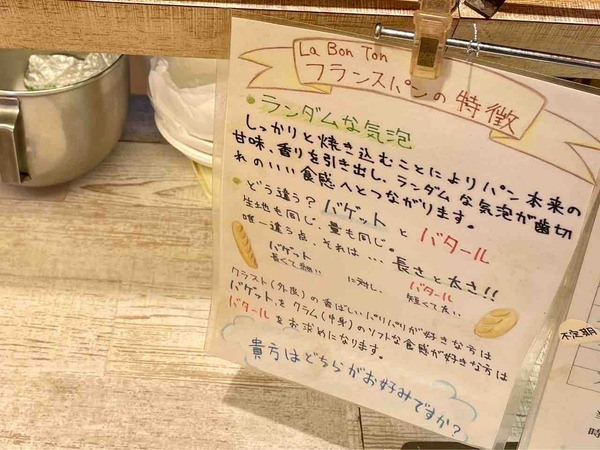 La Bon Ton
フランスパンの特徴
●ランダムな気泡
しっかりと焼き込むことによりパン本来の
甘味、香りを引き出し、ランダムな気泡が歯切
れのいい食感へとつながります。
●どう違う？バゲットとバタール
生地も同じ、量も同じ。
唯一違う点、それは…長さと太さ!!
バゲット 長くて細い に対し、バタール 短くて太い
クラスト(外皮)の香ばしいパリパリが好きな方は
バゲットを クラム(中身)のソフトな食感が好きな方は
バタールをお求めになります。
貴方はどちらがお好みですか？
不定期
時